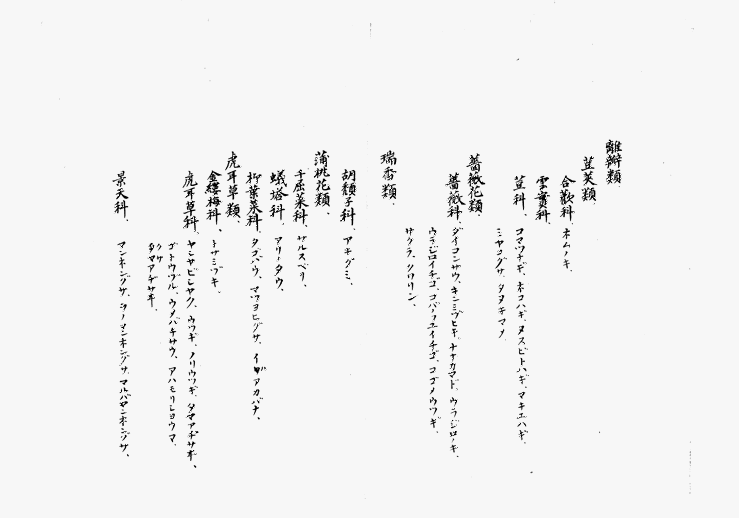 離瓣類
荳莢類、
合歡科、ネムノキ、
雲實科、
荳科、コマツナギ、ネコハギ、ヌスビトハギ、マキエハギ、
ミヤコグサ、タヌキマメ、
薔薇花類、
薔薇科、ダイコンサウ、キンミヅヒキ、ナナカマド、ウラジローキ、
ウラジロイチゴ、コバノフユイチゴ、コゴメウツギ、
サクラ、クワリン、
瑞香類、
胡頽子科、アキグミ、
蒲桃花類、
千屈菜科、サルスベリ、
蟻塔科、アリノタウ、
柳葉菜科、タゴバウ、マツヨヒグサ、アカバナ、
虎耳草類、
金縷梅科、トサミヅキ、
虎耳草科、ヤシヤビシヤク、ウツギ、ノリウツギ、タマアヂサヰ、
ゴトウヅル、ウメバチサウ、アハモリシヨウマ、
クサ
タマアヂサヰ、
景天科、マンネングサ、マルバマンネングサ、